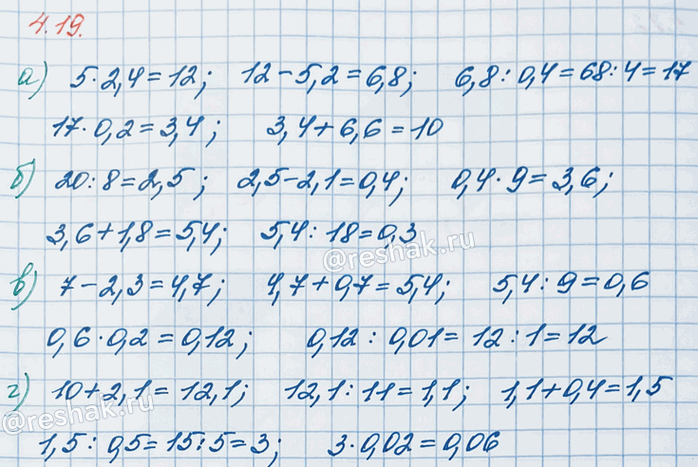 4.19.
а) 5·2,4=12; 12-5,2=6,8; 6,8:0,4=68:4=17
17·0,2=3,4; 3,4+6,6=10
б) 20:8=2,5; 2,5-2,1=0,4; 0,4·9=3,6;
3,6+1,8=5,4; 5,4:18=0,3
@reshak.ru
в) 7-2,3=4,7; 4,7+0,7=5,4; 5,4:9=0,6
0,6·0,2=0,12; 0,12:0,01=12:1=12
г) 10+2,1=12,1; 12,1:11=1,1; 1,1+0,4=1,5
@reshak.ru
1,5:0,5=15:5=3; 3·0,02=0,06